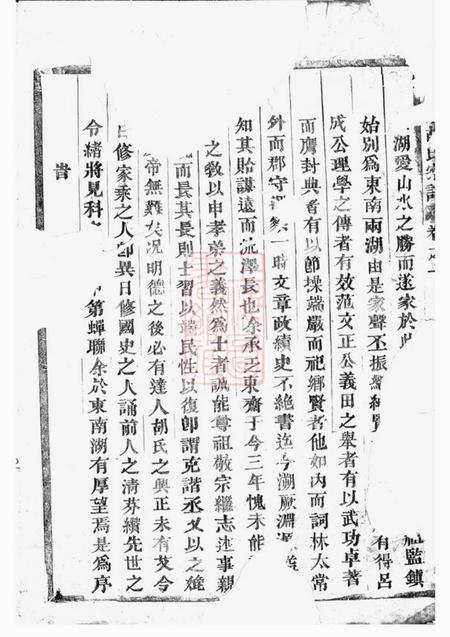 監鎮
有得呂
湖愛山水之勝而遂家於此
始別爲東南兩湖由是家聲丕振
成公理學之傳者有效范文正公義田之舉者有以武功卓著
而膺封典者有以節操端嚴而祀鄉賢者他如內而詞林太常
外而郡守一時文章政績史不絕書迄今溯厥淵源
知其貽謀遠而流澤長也余承乏東齋于今三年愧未能
之敎以申孝弟之義然爲士者誠能尊祖敬宗繼志述事親
而長其長則士習以端民性以復卽謂克諧丞乂以之
帝無難矣况明德之後必有達人胡氏之興正未有艾今
日修家乘之人卽異日修國史之人誦前人之清芬纘先世之
令緒將見科第蟬聯余於東南湖有厚望焉是爲序
旹